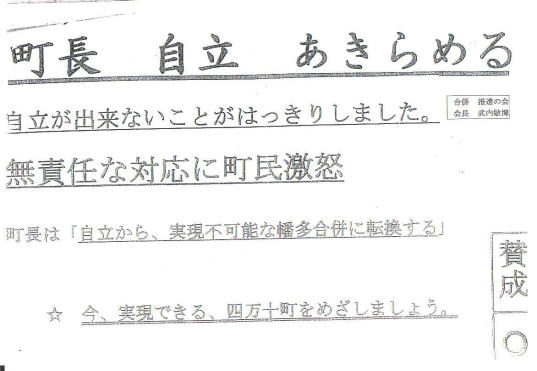 町長　自立　あきらめる
自立が出来ないことがはっきりしました。
合併　推進の会
会長　武内敏博
無責任な対応に町民激怒
町長は「自立から、実現不可能な幡多合併に転換する」
☆　今、実現できる、四万十町をめざしましょう。
賛成
○